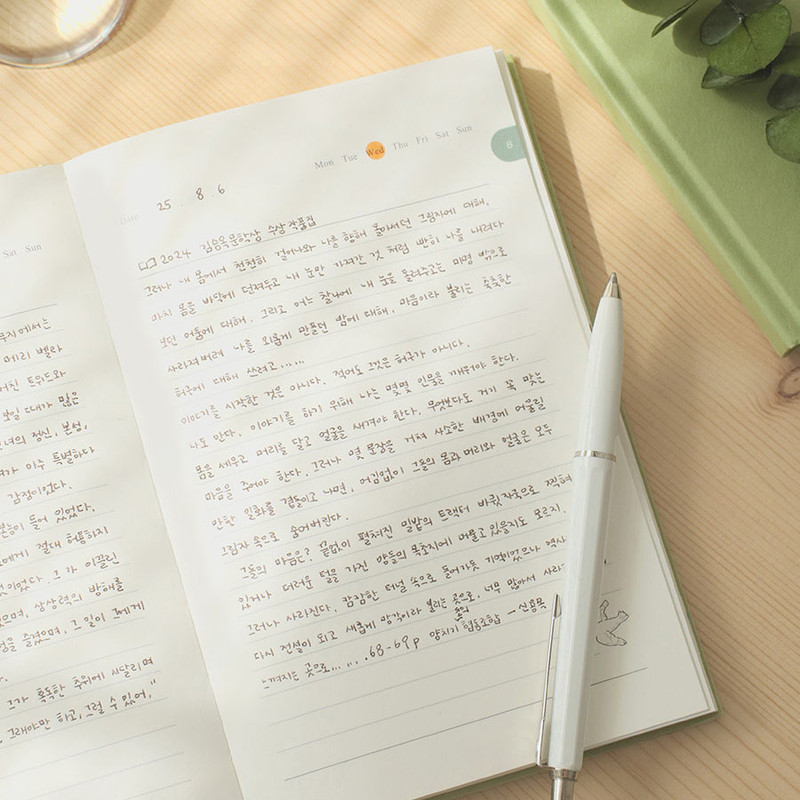 Sat Sun
무지에서는
머리 벨라
어진 트위드와
보일 때가 많은
그녀의 정신, 본성,
가 아주 특별하다
감정이었다.
본능이 들어 있었다.
에게 절대 허용하지
것이었다. 그가 이끌린
으며, 상상력의 방해를
을 즐겼으며, 그 일이 그에게
그가 혹독한 추위에 시달리며
그래야만 하고, 그럴 수 있어,"
Mon Tue Wed Thu Fri Sat Sun
8
Date 25 . 8 . 6
2024 김승옥문학상 수상작품집
그러나 내 몸에서 천천히 걸어나와 나를 향해 돌아서던 그림자에 대해,
마치 몸을 바닥에 던져두고 내 눈만 가져간 것 처럼 빤히 나를 내려다
보던 어둠에 대해. 그리고 어느 찰나에 내 눈을 돌려주고는 미명 밖으로
사라져버려 나를 외롭게 만들던 밤에 대해, 마음이라 불리는 축축한
허구에 대해 쓰려고......
이야기를 시작한 것은 아니다. 적어도 그것은 허구가 아니다.
나도 안다. 이야기를 하기 위해 나는 몇몇 인물을 깨워야 한다.
몸을 세우고 머리를 달고 얼굴을 새겨야 한다. 무엇보다도 거기 꼭 맞는
마음을 주어야 한다. 그러나 몇 문장을 거쳐 사소한 배경에 어울릴
만한 일화를 곁들이고 나면, 어김없이 그들의 몸과 머리와 얼굴은 모두
그림자 속으로 숨어버린다.
그들의 마음은? 끝없이 펼쳐진 밀밭의 트랙터 바큇자국으로 찍혀
있거나 더러운 털을 가진 양들의 목초지에 머물고 있을지도 모르지.
그러나 사라진다. 캄캄한 터널 속으로 들어가듯 기억이었으나 역사
다시 전설이 되고 새롭게 망각이라 불리는 곳으로, 너무 많아서 사라
느껴지는 곳으로...... .68-69p 양치기 협동조합 -신용목